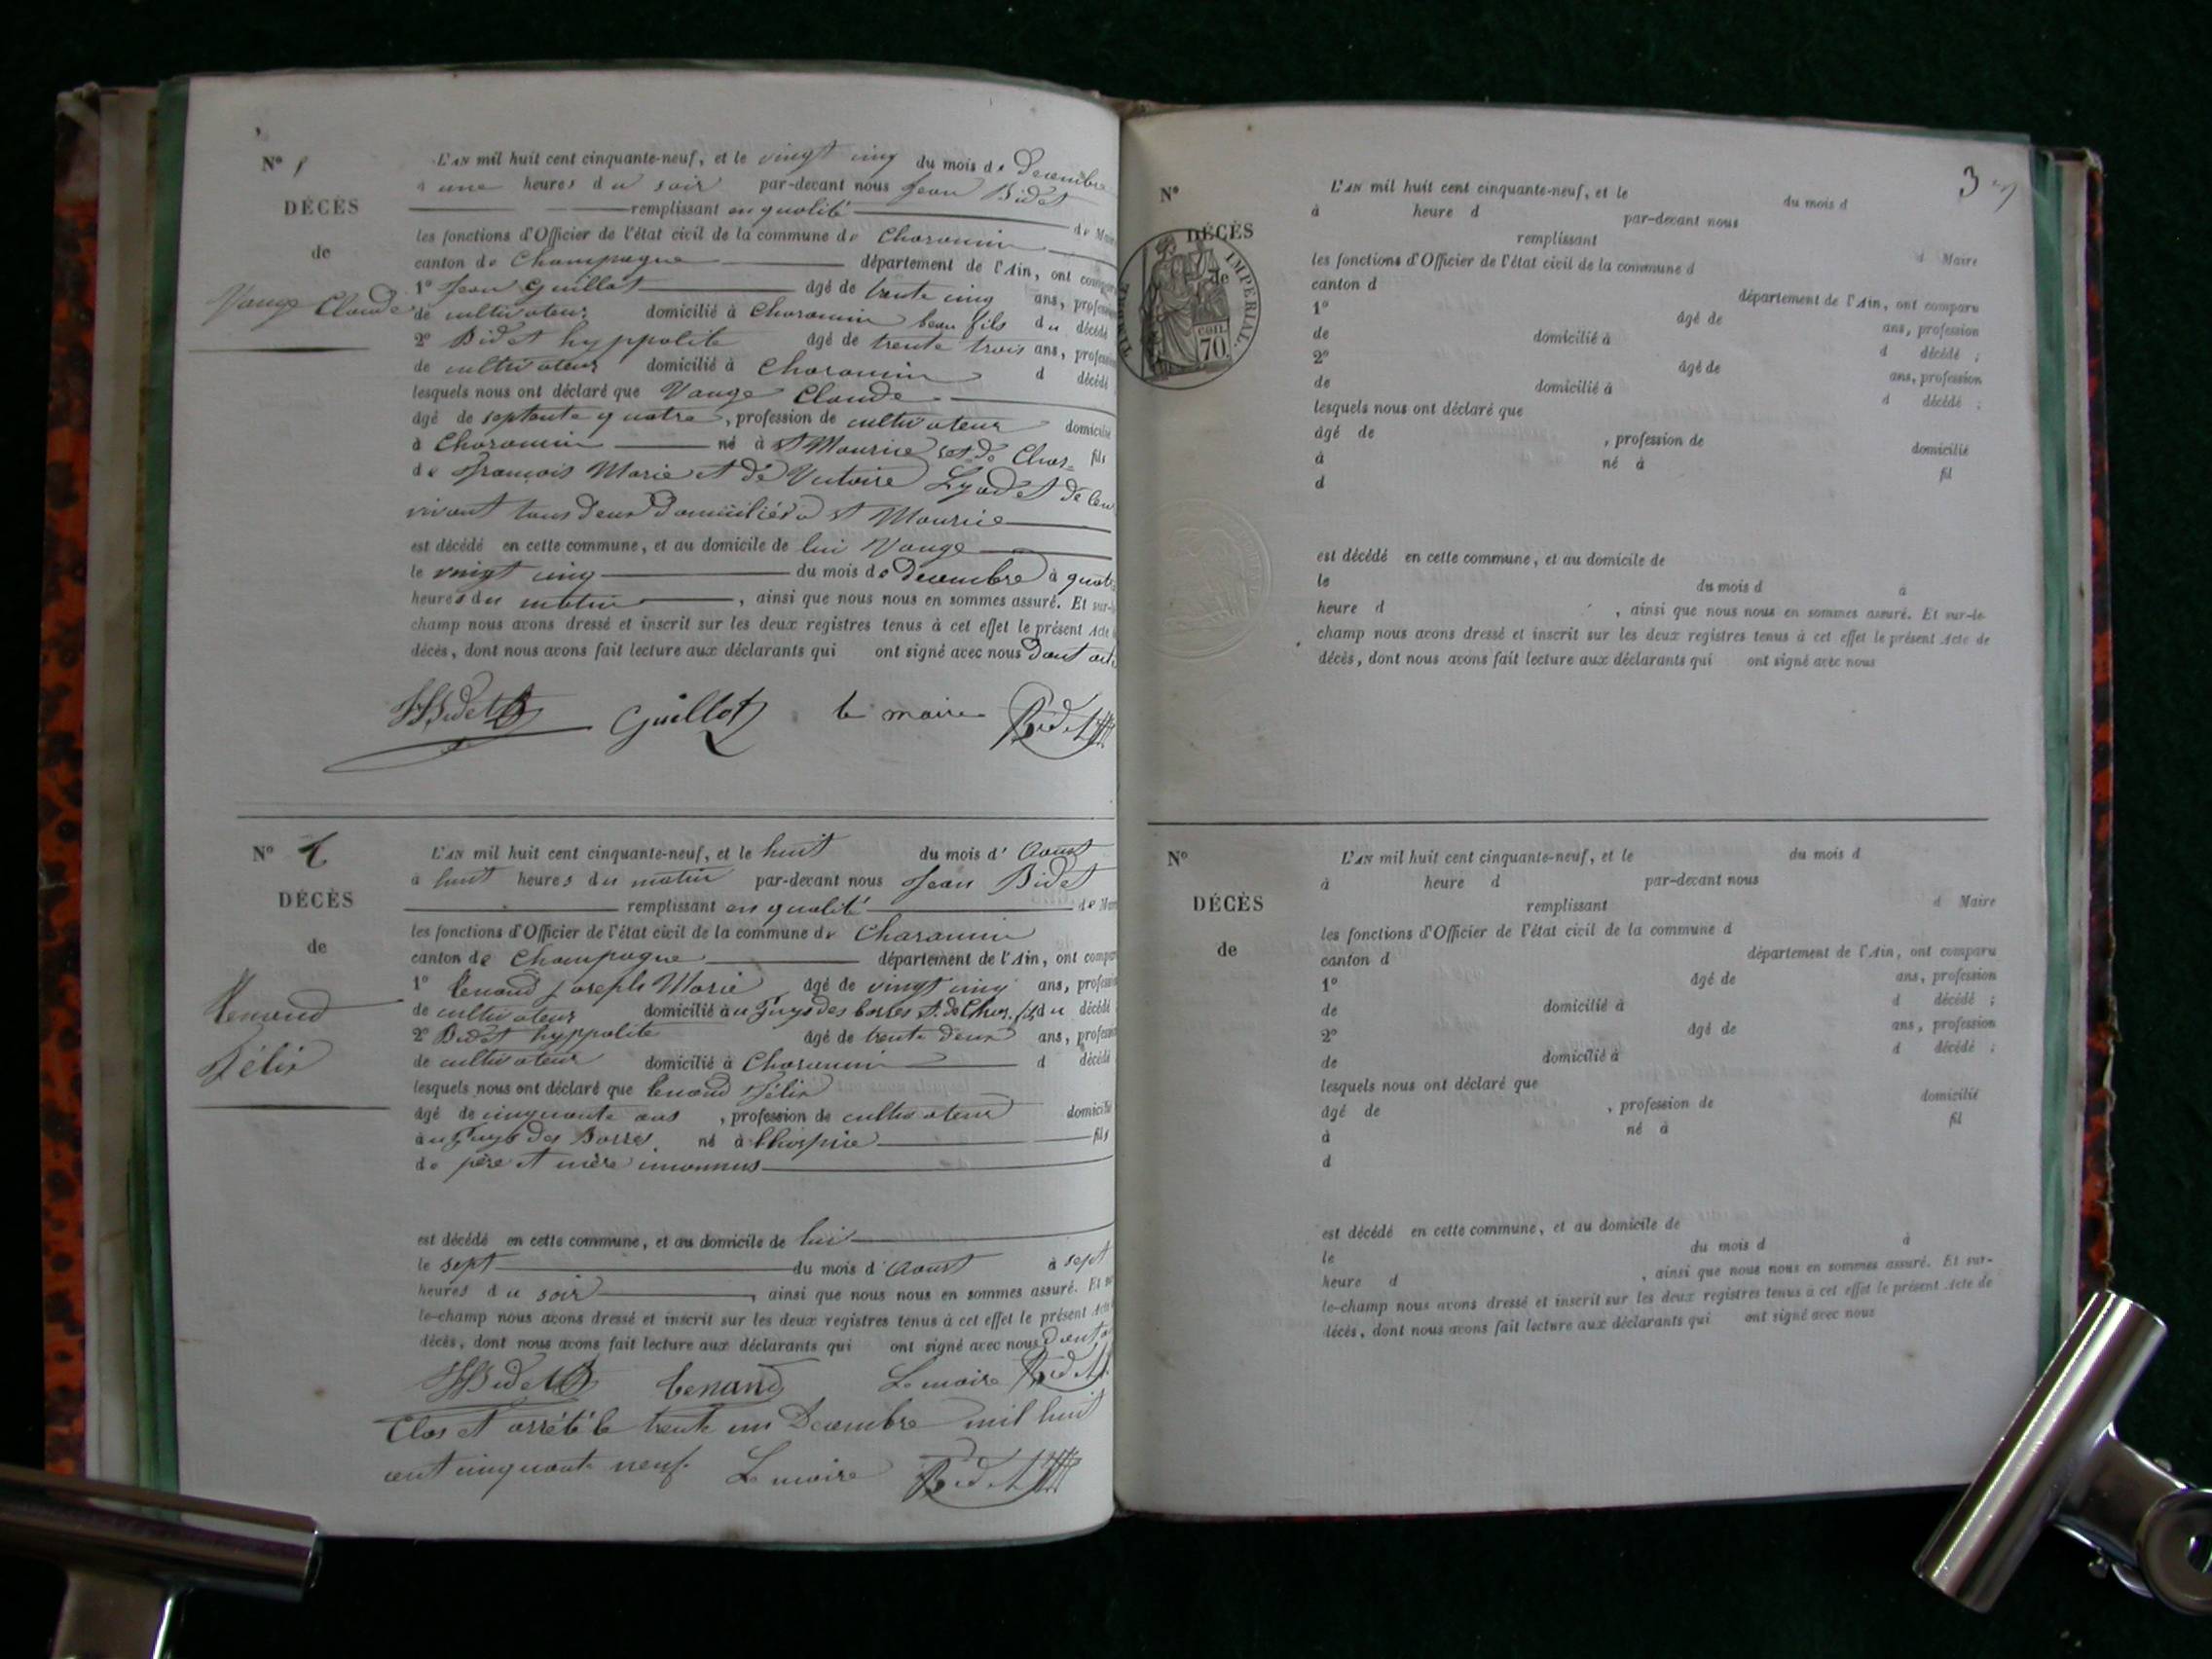 N°
DÉCÈS
de
Vange Claude
L'AN mil huit cent cinquante-neuf, et le vingt cinq du mois de Decembre
à une heures du soir par-devant nous Jean Bidet
remplissant en qualité de Maire
les fonctions d'Officier de l'état civil de la commune de Charancin
canton de Champagne département de l'Ain, ont comparu
1° Jean Guillot âgé de trente cinq ans, profession
de cultivateur domicilié à Charancin beau fils du décédé
2° Bidet hyppolite âgé de trente trois ans, profession
de cultivateur domicilié à Charancin d décédé
lesquels nous ont déclaré que Vange Claude
âgé de septante quatre, profession de cultivateur domicilié
à Charancin né à St Maurice Set de Char= fils
de françois Marie et de Victoire Lyaudet de leur
vivant tous deux Domiciliés à St Maurice
est décédé en cette commune, et au domicile de lui Vange
le vingt cinq du mois de decembre à quatre
heures du matin, ainsi que nous nous en sommes assuré. Et sur-le-
champ nous avons dressé et inscrit sur les deux registres tenus à cet effet le présent Acte
décès, dont nous avons fait lecture aux déclarants qui ont signé avec nous Dont acte
HBidet Guillot le maire Bidet
N°
DÉCÈS
de
Félix
L'AN mil huit cent cinquante-neuf, et le huit du mois d' Aoust
à huit heures du matin par-devant nous Jean Bidet
remplissant en qualité de Maire
les fonctions d'Officier de l'état civil de la commune de Charancin
canton de Champagne département de l'Ain, ont comparu
1° Cenand joseph Marie âgé de vingt cinq ans, profession
de cultivateur domicilié au des S. de Char. fils du décédé
2° Bidet hyppolite âgé de trente deux ans, profession
de cultivateur domicilié à Charancin d décédé
lesquels nous ont déclaré que Cenand Félix
âgé de cinquante ans, profession de cultivateur domicilié
au des né à l'hospice fils
de père et mère inconnus
est décédé en cette commune, et au domicile de lui
le sept du mois d'Aoust à sept
heures du soir, ainsi que nous nous en sommes assuré. Et sur-
le-champ nous avons dressé et inscrit sur les deux registres tenus à cet effet le présent Acte
décès, dont nous avons fait lecture aux déclarants qui ont signé avec nous dont
HBidet Cenand Le maire Bidet
Clos et arrêté le trente un Decembre mil huit
cent cinquante neuf. Le maire Bidet
3
N°
DÉCÈS
de
TIMBRE IMPERIAL.
70.
L'AN mil huit cent cinquante-neuf, et le du mois d
à heure d par-devant nous
remplissant d Maire
les fonctions d'Officier de l'état civil de la commune d
canton d département de l'Ain, ont comparu
1° âgé de ans, profession
de domicilié à d décédé ;
2° âgé de ans, profession
de domicilié à d décédé ;
lesquels nous ont déclaré que
âgé de , profession de domicilié
à né à fil
d
est décédé en cette commune, et au domicile de
le du mois d à
heure d , ainsi que nous nous en sommes assuré. Et sur-le-
champ nous avons dressé et inscrit sur les deux registres tenus à cet effet le présent Acte de
décès, dont nous avons fait lecture aux déclarants qui ont signé avec nous
N°
DÉCÈS
de
L'AN mil huit cent cinquante-neuf, et le du mois d
à heure d par-devant nous
remplissant d Maire
les fonctions d'Officier de l'état civil de la commune d
canton d département de l'Ain, ont comparu
1° âgé de ans, profession
de domicilié à d décédé ;
2° âgé de ans, profession
de domicilié à d décédé ;
lesquels nous ont déclaré que
âgé de , profession de domicilié
à né à fil
d
est décédé en cette commune, et au domicile de
le du mois d à
heure d , ainsi que nous nous en sommes assuré. Et sur-
le-champ nous avons dressé et inscrit sur les deux registres tenus à cet effet le présent Acte de
décès, dont nous avons fait lecture aux déclarants qui ont signé avec nous